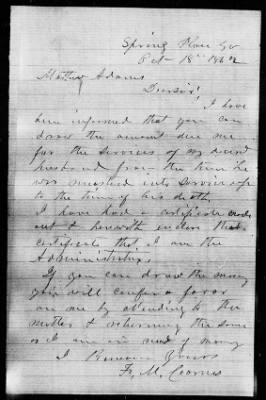 Spring Place Ga
Oct 18th 1862
Mathew Adams
Dear Sir!
I have
been informed that you can
draw the amount due me
for the services of my decesd
husband from the time he
was mustered into Service up
to the time of his death
I have had a certificate made
out & herewith enclose that
certificate that I am the
Administratrix.
If you can draw the money
you will confer a favor
on me by attending to the
matter & returning the same
as I am in need of money
I Remain Yours
M.